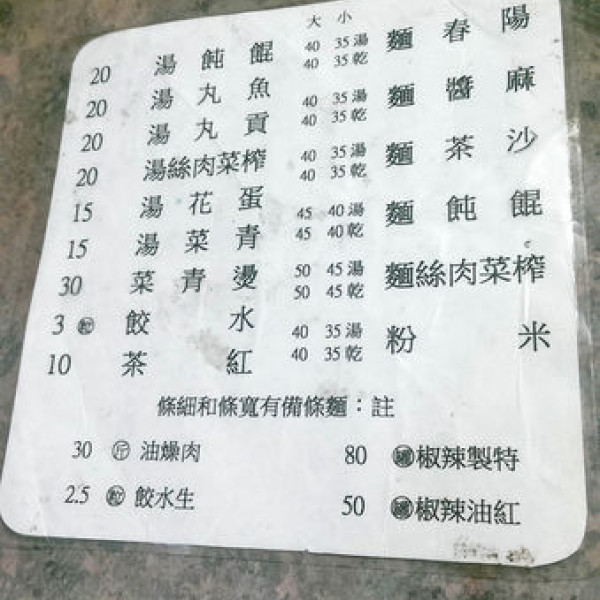 小 大
陽春麵 湯 35 40
乾 35 40
麻醬麵 湯 35 40
乾 35 40
沙茶麵 湯 35 40
乾 35 40
餛飩麵 湯 40 45
乾 40 45
榨菜肉絲麵 湯 45 50
乾 45 50
米粉 湯 35 40
乾 35 40
餛飩湯 20
魚丸湯 20
貢丸湯 20
榨菜肉絲湯 20
蛋花湯 15
青菜湯 15
燙青菜 30
水餃 粒 3
紅茶 10
註：麵條備有寬條和細條
特製辣椒 罐 80
紅油辣椒 罐 50
肉燥油 斤 30
生水餃 粒 2.5